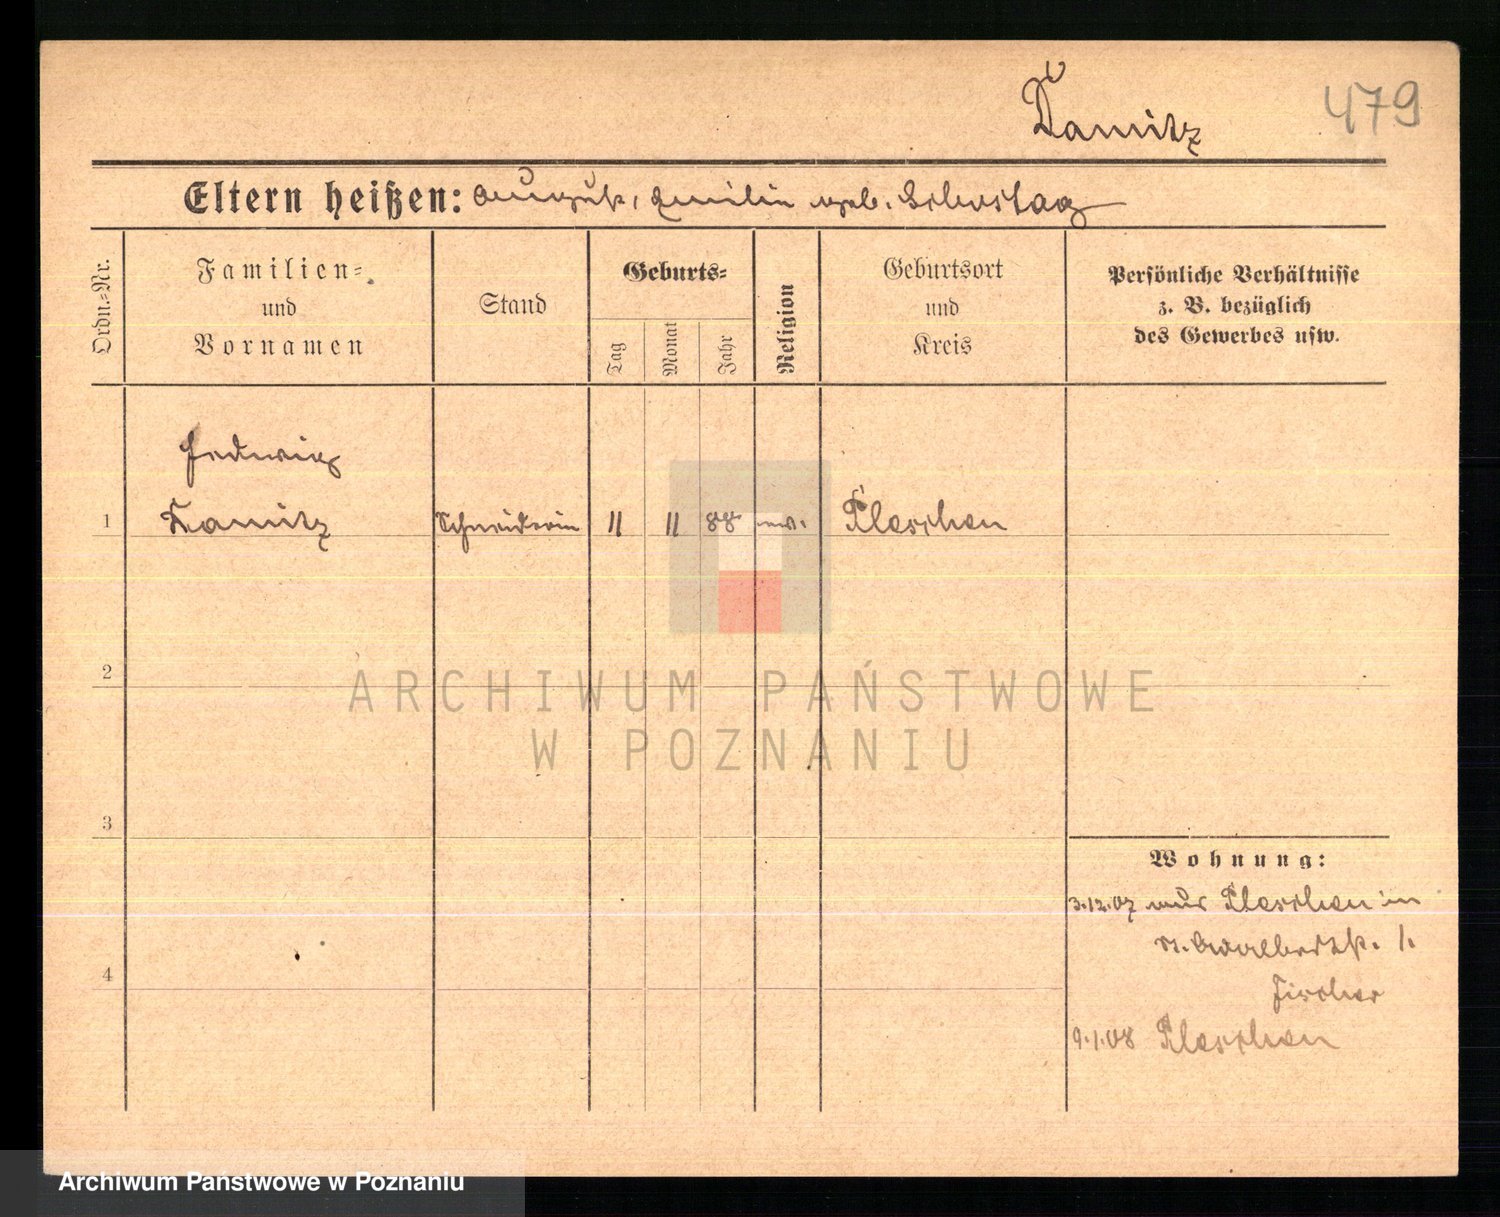 Damitz
479
Eltern heißen: August, Emilie geb.
Ordn.=Nr.
Familien=
und
Vornamen
Stand
Geburts=
Tag
Monat
Jahr
Religion
Geburtsort
und
Kreis
Persönliche Verhältnisse
z. B. bezüglich
des Gewerbes usw.
Hedwig
1 Damitz Schneiderin 11 11 88 ev. Pleschen
2
3
4
Wohnung:
3.12.07 aus Pleschen in
St. Adalbertstr. 1.
Fischer
9.1.08 Pleschen
ARCHIWUM PAŃSTWOWE
W POZNANIU
Archiwum Państwowe w Poznaniu